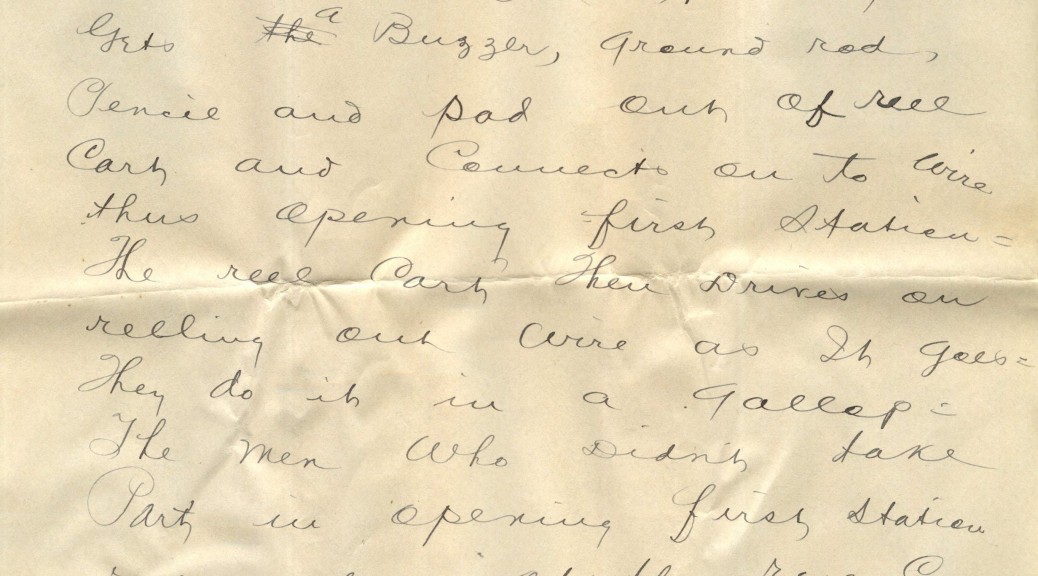 Gets a Buzzer, ground rod,
Pencil and pad out of reel
Cart and Connects on to Wire
thus opening first Station =
The reel Cart Then Drives on
relling out wire as It goes =
They do it in a gallop =
The men Who Didn't take
Part in opening first station